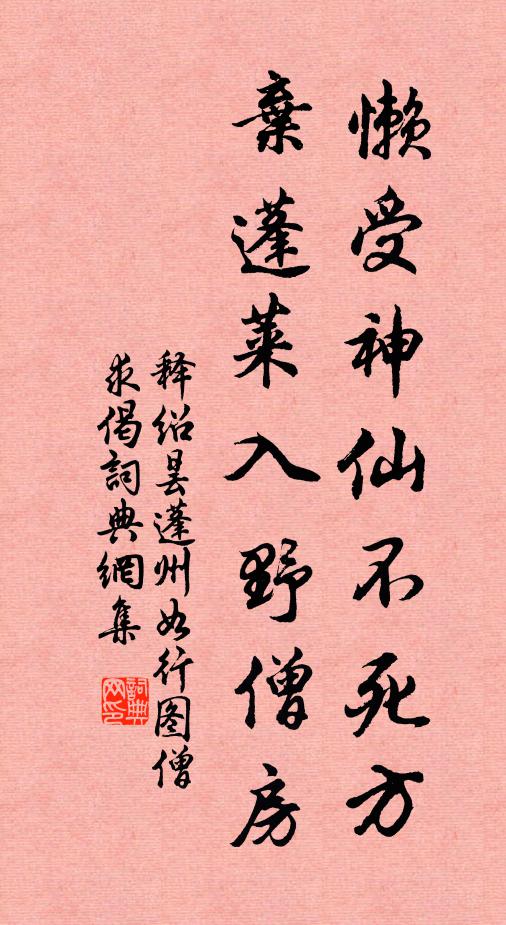 懒受神仙不死方
弃蓬莱入野僧房
释绍昙蓬州如行图僧
求偈詞典網集
詞典网印